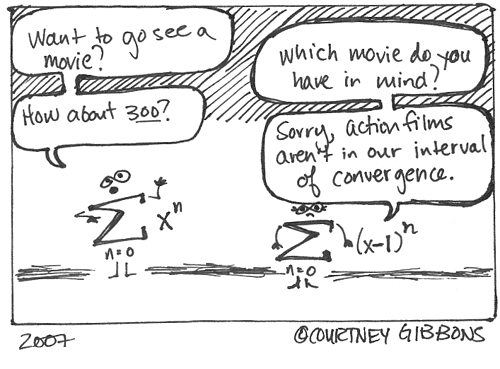 Want to go see a
movie?
Which movie do you
have in mind?
How about 300?
Sorry, action films
aren't in our interval
of convergence.
Σ xⁿ
n=0
Σ (x-1)ⁿ
n=0
2007
©COURTNEY GIBBONS